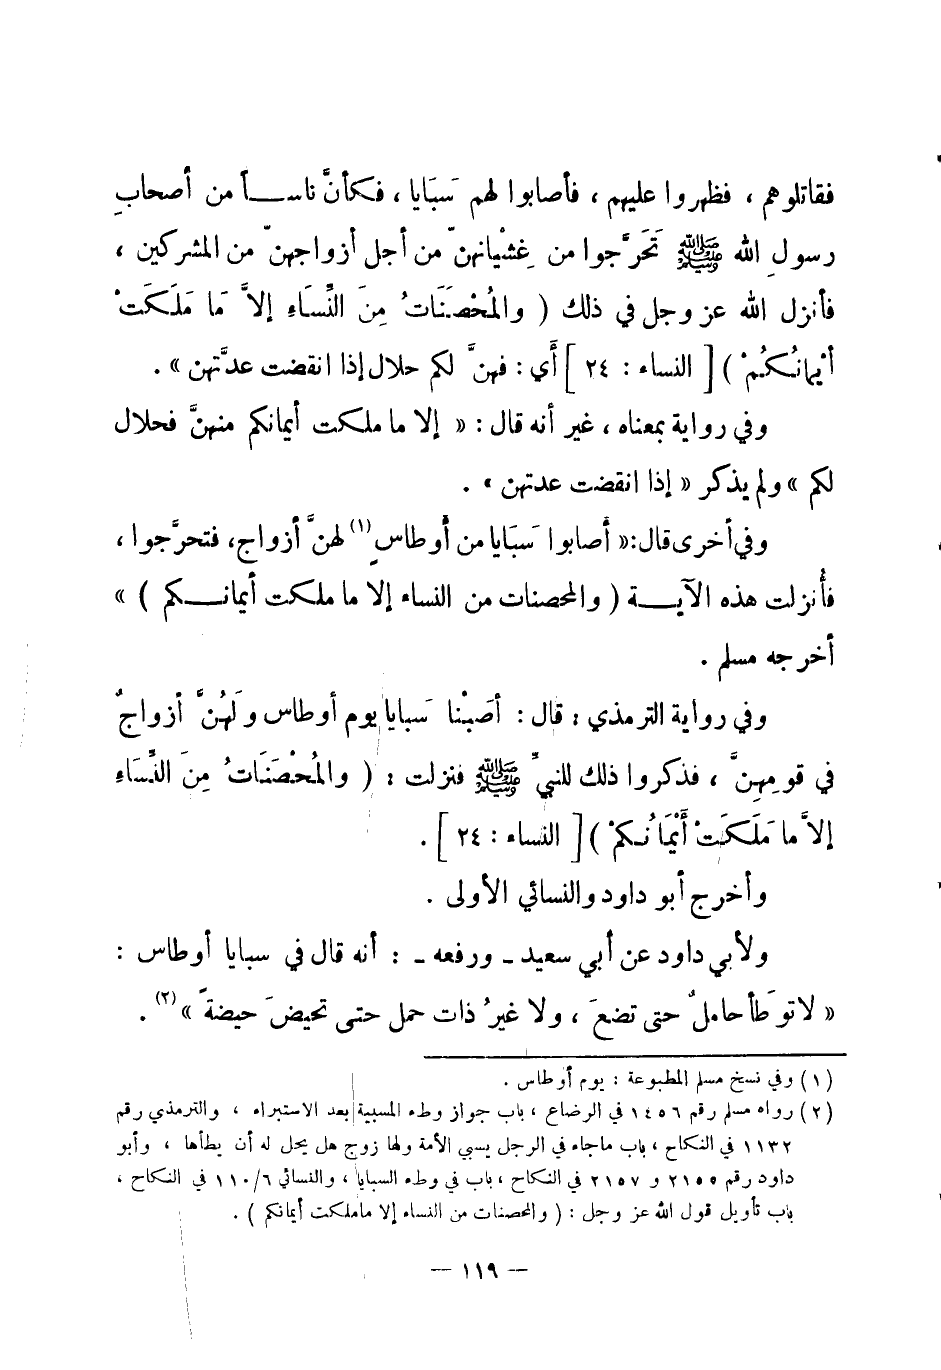 فقاتلوهم ، فظهروا عليهم ، فأصابوا لهم سَبَايا ، فكأنَّ ناســاً من أصحابِ
رسولِ الله ﷺ تَحَرَّجوا من غِشْيَانهنّ من أجل أزواجهنّ من المشركين ،
فأنزل الله عز وجل في ذلك ( والمُحْصَنَاتُ مِنَ النِّسَاءِ إلاَّ مَا مَلَكَتْ
أيْمانُـكُمْ ) [ النساء : ٢٤ ] أَي : فهنَّ لكم حلال إذا انقضت عدَّتهن » .
وفي رواية بمعناه ، غير أنه قال : « إلا ما ملكت أيمانكم منهنَّ فحلال
لكم » ولم يذكر « إذا انقضت عدتهن » .
وفي أخرى قال: « أصابوا سَبَايا من أوطاسٍ (١) لهنَّ أزواج، فتحرَّجوا ،
فأُنزلت هذه الآيــة ( والمحصنات من النساء إلا ما ملكت أيمانــكم ) »
أخرجه مسلم .
وفي رواية الترمذي ، قال : أصَبْنا سَبايا يوم أوطاس ولَهُنَّ أزواجٌ
في قومِهِنَّ ، فذكروا ذلك للنبيِّ ﷺ فنزلت : ( والمُحْصَنَاتُ مِنَ النِّسَاءِ
إلاَّ ما مَلَكَتْ أَيْمَانُـكمْ ) [ النساء : ٢٤ ] .
وأخرج أبو داود والنسائي الأولى .
ولأبي داود عن أبي سعيد ـ ورفعه ـ : أنه قال في سبايا أوطاس :
« لا توطَأ حاملٌ حتى تضعَ ، ولا غيرُ ذات حمل حتى تحيضَ حيضةً » (٢) .
(١) وفي نسخ مسلم المطبوعة : يوم أوطاس .
(٢) رواه مسلم رقم ١٤٥٦ في الرضاع ، باب جواز وطء المسبية بعد الاستبراء ، والترمذي رقم
١١٣٢ في النكاح ، باب ماجاء في الرجل يسبي الأمة ولها زوج هل يحل له أن يطأها ، وأبو
داود رقم ٢١٥٥ و ٢١٥٧ في النكاح ، باب في وطء السبايا ، والنسائي ١١٠/٦ في النكاح ،
باب تأويل قول الله عز وجل : ( والمحصنات من النساء إلا ماملكت أيمانكم ) .
— ١١٩ —